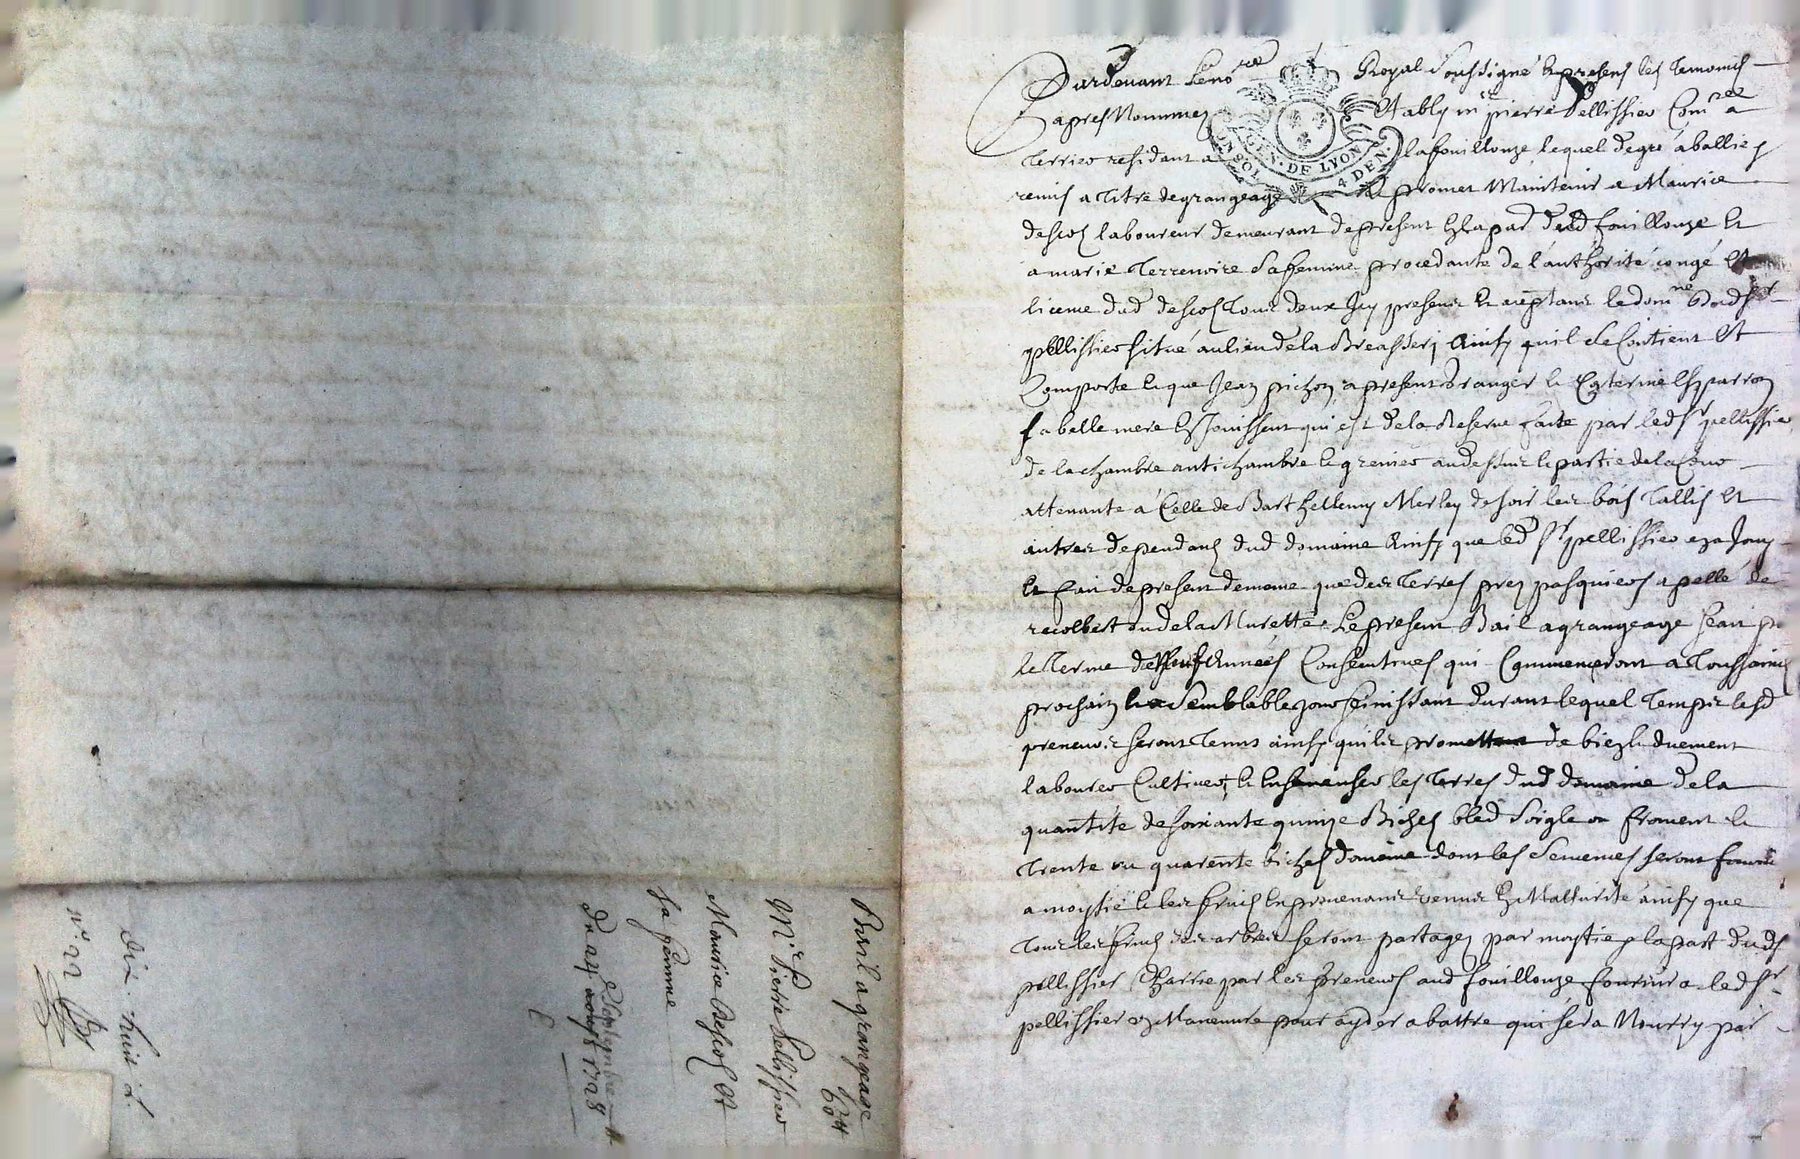 Pardevant le no.re Royal soussigné & presens les temoins
bapres Nommez Estably m.re pierre pellissier Com.re a
terrier residant a lafouillouze lequel de gré a ballie &
remis a titre de grangeage & promet Maintenir a Maurice
descos laboureur demeurant de present en la par. dud fouillouze Et
a marie Terrenoire sa femme procedante de l'authorité congé Et
licence dud descos Tous deux Icy presens Et aceptans le dom.ne dud s.r
pellissier situé au lieu de la Breassery Ainsy quil se Contient Et
Comporte & que Jean pichon a present Granger & Caterine Esparron
sa belle mere En Jouissent qui est de la Reserve faite par led s.r pellissier
de la chambre antichambre & grenier au dessus & partie de la Cour
attenante á Celle de Barthellemy Merley de soir les bois Tallis Et
autres dependans dud domaine Ainsy que led s.r pellissier en a Jouy
Et fait de present de meme que des Terres prez pasquiers apellé de
ou de la Murette Le present Bail a grangeage
le Terme de années Consecutives qui Commenceront a Toussaints
prochain & a Semblable jour finissant durant lequel Temps lesd
preneurs seront Tenus ainsy quils promettent de bien & duement
labourer Cultiver & Ensemenser les Terres dud domaine de la
quantité de soixante quinze Bichez bled Soigle ou froment &
Trente ou quarente bichez d'avoine dont les Semences seront fournie
a moytié & les fruits En provenants venus En Matturité ainsy que
Tous les fruits des arbres seront partagez par moytie la part dud s.r
pellissier Charrié par les preneurs aud fouillouze fournira led s.r
pellissier un Maneuvre pour ayder a battre qui sera Nourry par
Bail a grangeage
M.re Pierre Pellissier
Maurice Descos Et
sa femme
Du 24 Septembre 1728
Dix huit L.
N.o 22
IN SOL GEN. DE LYON 4 DEN.